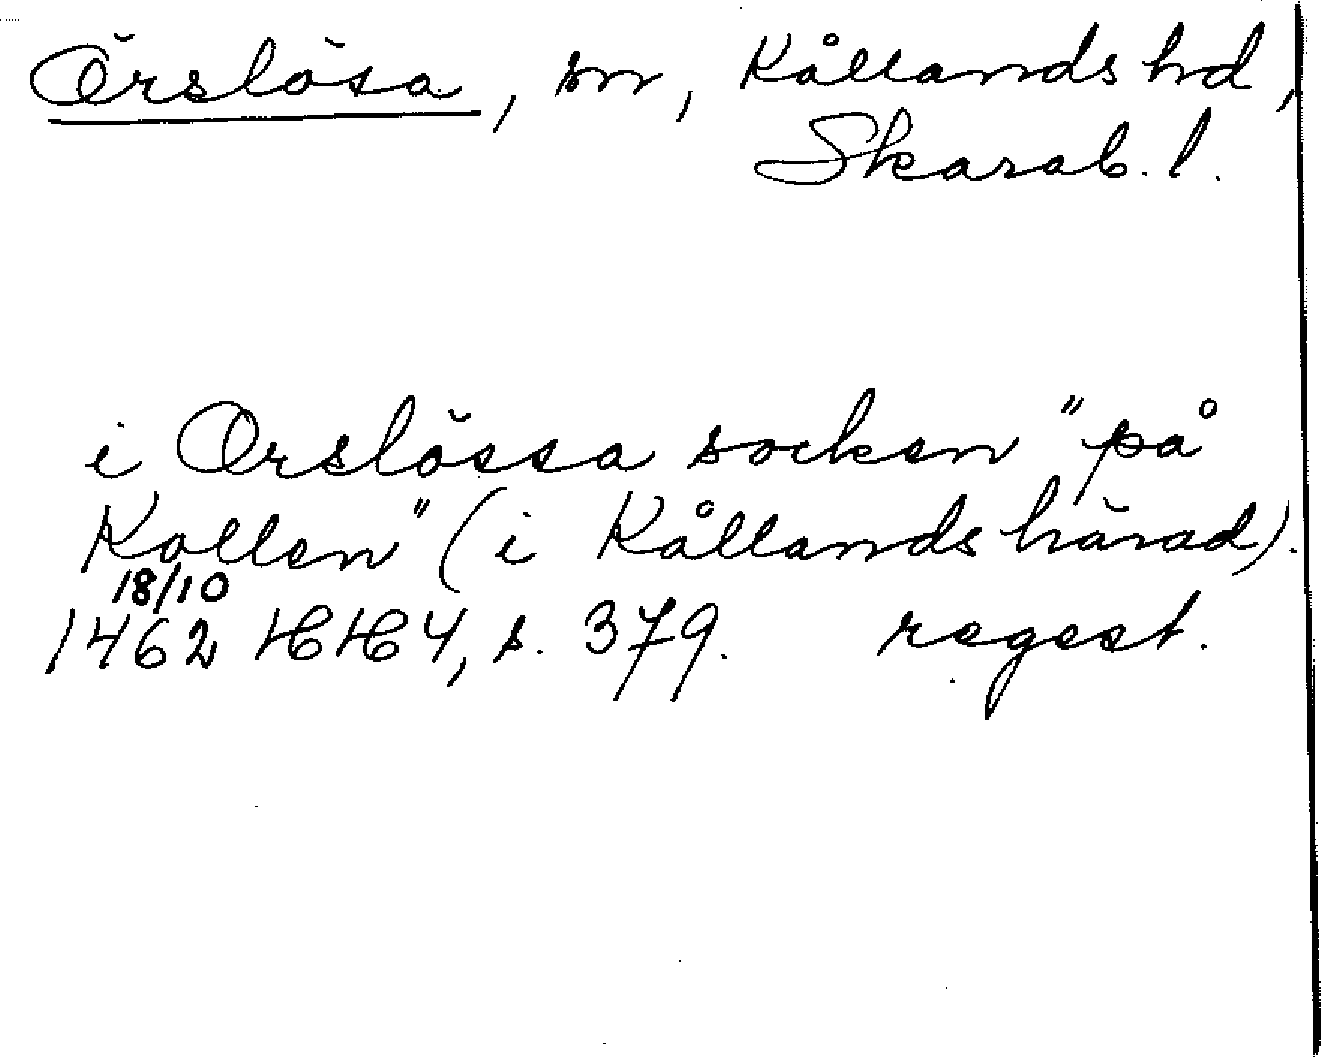 Örslösa, sn, Kållands hd,
Skarab. l.
i Orslössa socken "på
Kollen" (i Kållands härad).
18/10
1462 HH 4, s. 379. regest.